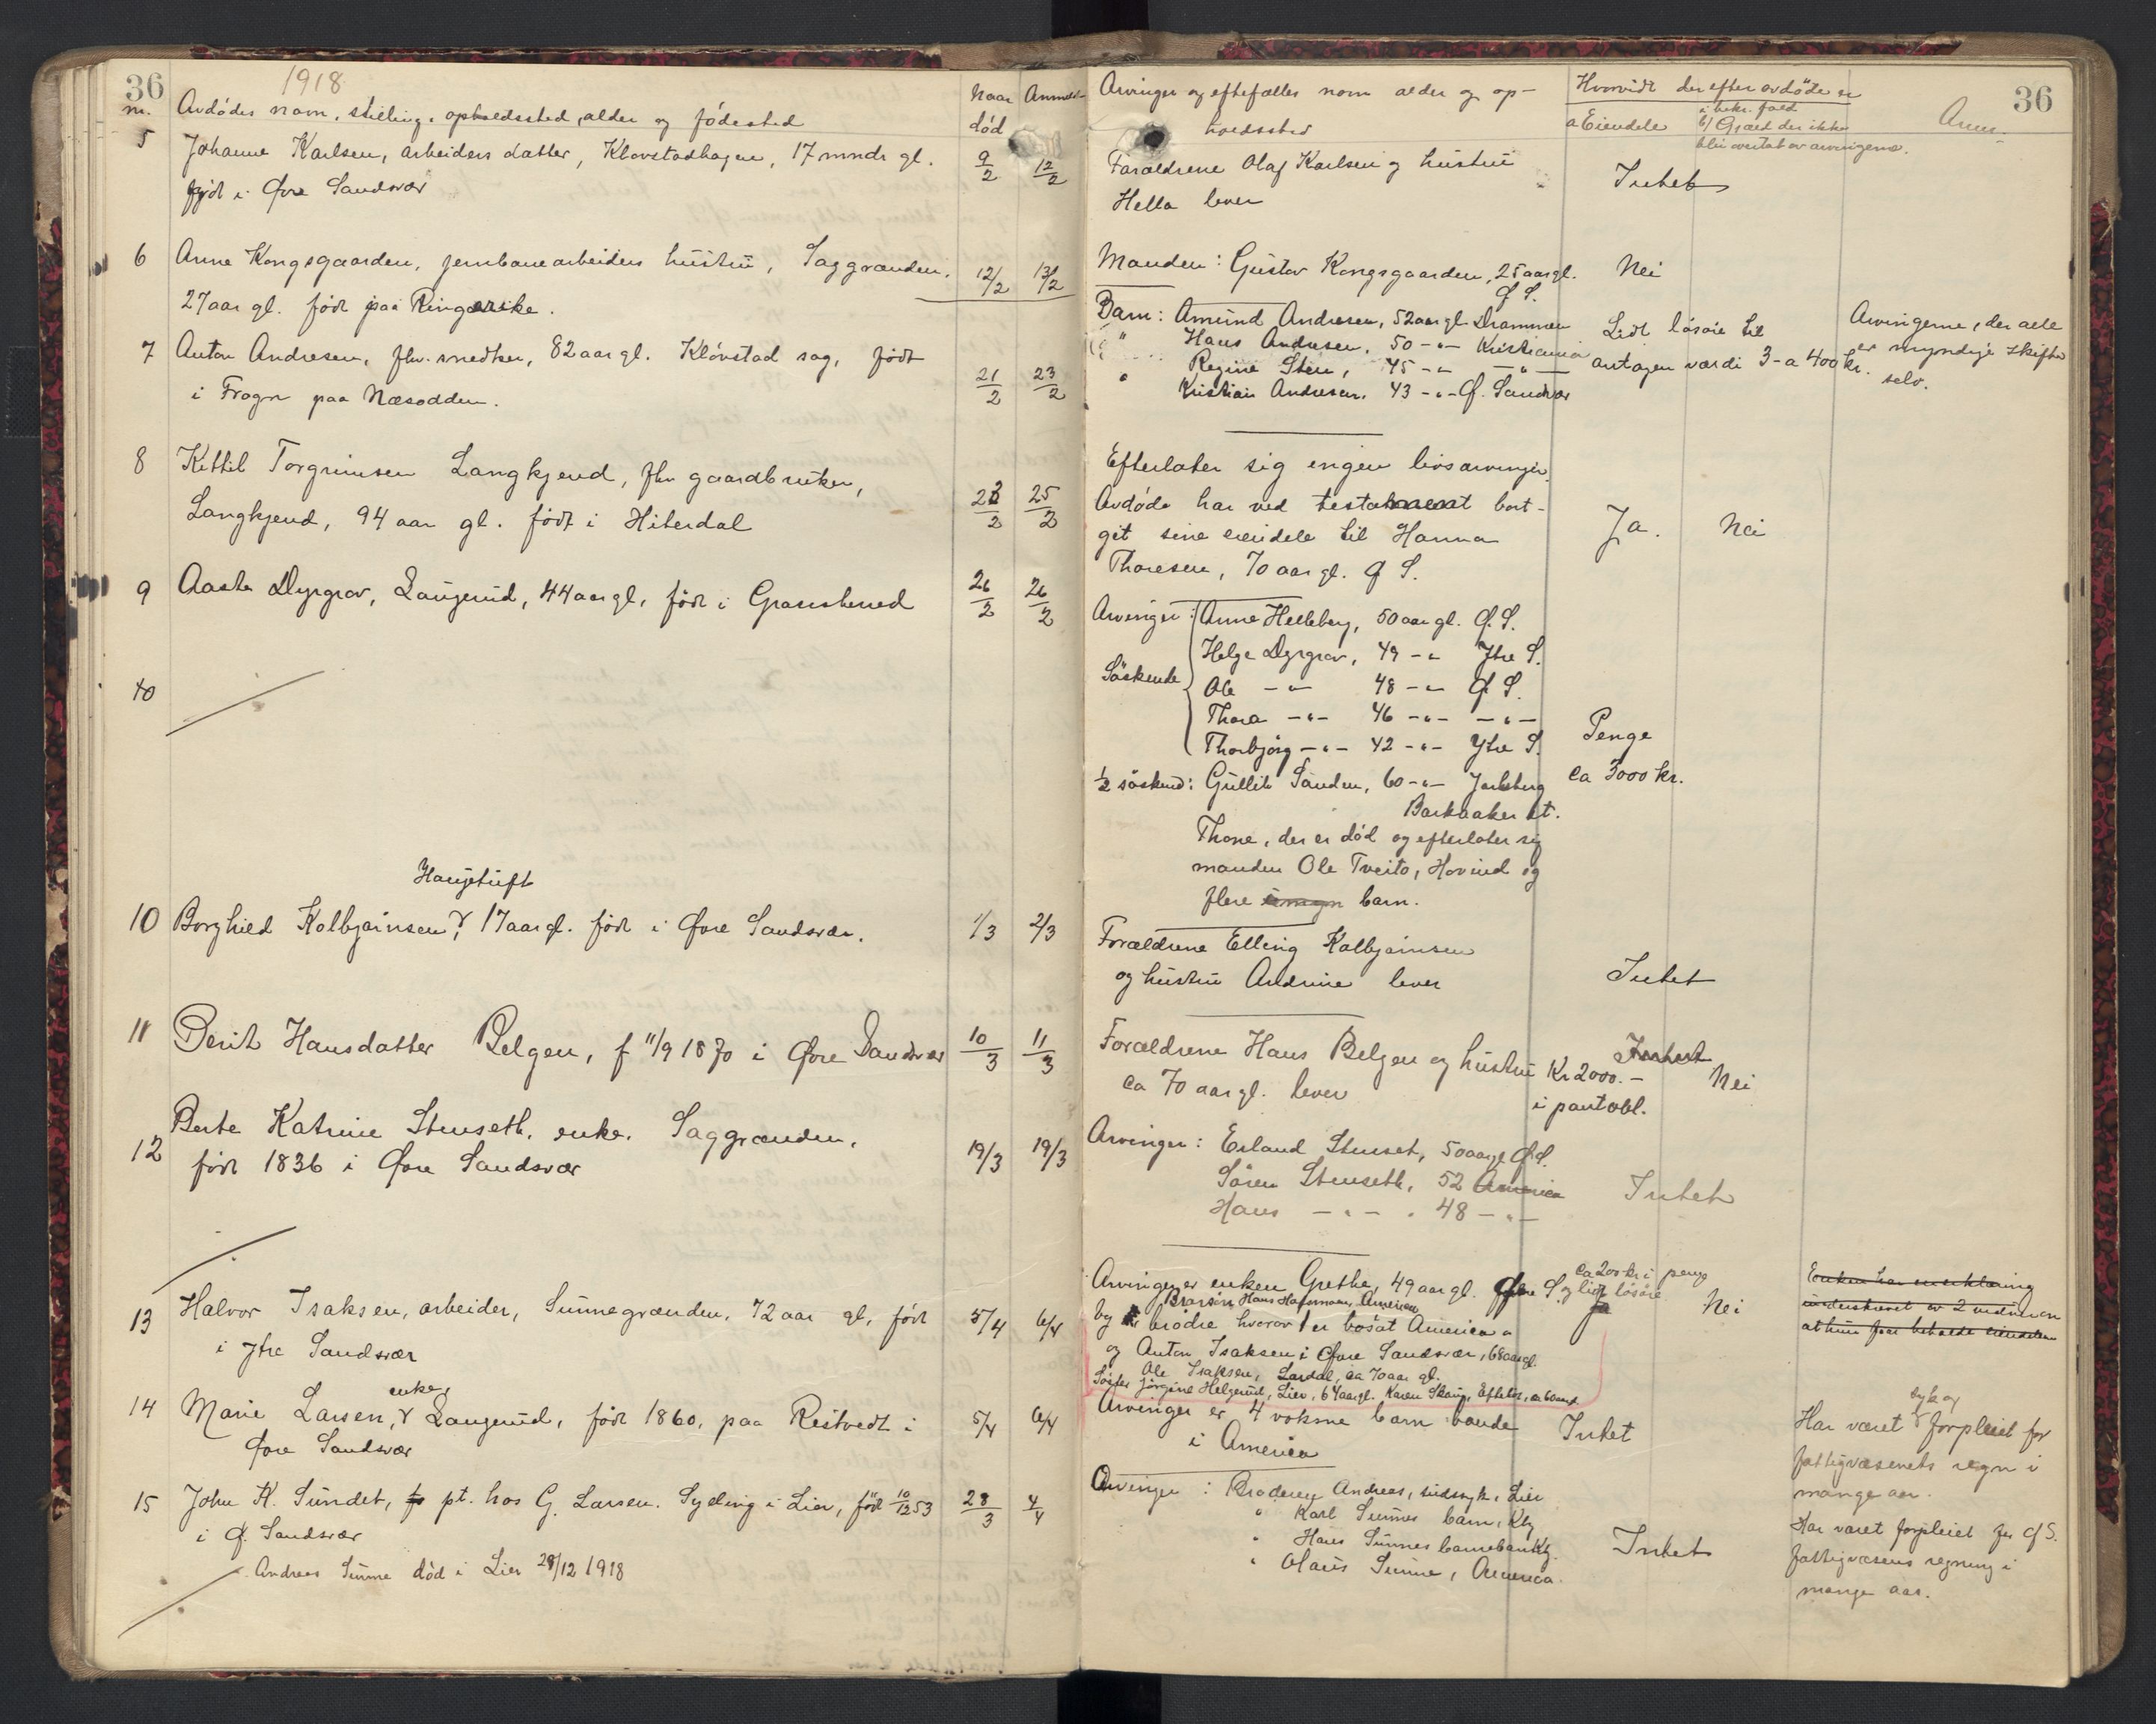 36
1918
nr.
Avdødes navn, stilling, opholdssted, alder og fødested
Naar død
Anmeldt
5
Johanne Karlsen, arbeiders datter, Klovstadhagen, 17 mndr gl.
født i Øvre Sandsvær
9/2
12/2
6
Anne Kongsgaarden, jernbanearbeiders hustru, Saggrænden,
27 aar gl. født paa Ringerike.
12/2
13/2
7
Anton Andresen, fhv. snedker, 82 aar gl. Kløvstad sag, født
i Frogn paa Næsodden.
21/2
23/2
8
Kittil Torgrimsen Langkjend, fhv gaardbruker,
Langkjend, 94 aar gl. født i Hiterdal
23/2
25/2
9
Aaste Dyrgrav, Laugerud, 44 aar gl. født i Gransherred
26/2
26/2
10
Haugetuft
10
Borghild Kolbjørnsen, 17 aar gl. født i Øvre Sandsvær.
1/3
2/3
11
Berit Hansdatter Belgen, f 11/9 1870 i Øvre Sandsvær
10/3
11/3
12
Berte Katrine Stenseth, enke. Saggrænden,
født 1836 i Øvre Sandsvær
19/3
19/3
13
Halvor Isaksen, arbeider, Sunnegrænden, 72 aar gl, født
i Ytre Sandsvær
5/4
6/4
14
enke,
Marie Larsen, Laugerud, født 1860, paa Reistvedt i
Øvre Sandsvær
5/4
6/4
15
John K. Sundet, pt. hos G. Larsen. Sydling i Lier, født 10/12 53
i Ø. Sandsvær
28/3
4/4
Andreas Sunne død i Lier 28/12 1918
36
Arvinger og eftefølles navn alder og op-
holdssted
Hvorvidt der efter avdøde er
a Eiendele
i bekr. fald
b) Gjæld der ikke
blir overtat av arvingerne.
Anm.
Forældrene Olaf Karlsen og hustru
Hella lever
Intet
Manden: Gustav Kongsgaarden, 25 aar gl.
Ø S.
Nei
Barn: Amund Andresen, 52 aar gl Drammen
" Hans Andresen, 50 -"- Kristiania
" Regine Sten, 45 -"- -"-
" Kristian Andresen, 43 -"- Ø. Sandsvær
Lidt løsøre til
antagen værdi 3- a 400 kr.
Arvingerne, der alle
er myndige skifter
selv.
Efterlater sig ingen livsarvinger.
Avdøde har ved testament bort-
git sine eiendele til Hanna
Thoresen, 70 aar gl. Ø S.
Ja.
Nei
Arvinger: Anne Helleberg, 50 aar gl. Ø. S.
Helge Dyrgrav, 49 -"- Ytre S.
Søskende
Ole -"- 48 -"- Ø S.
Thora -"- 46 -"- -"-
Thorbjørg -"- 42 -"- Ytre S.
½ søskend: Gullik Sanden, 60 -"- Jarlsberg
Barkaaker st.
Thone, der er død og efterlater sig
manden Ole Tveito, Hovind og
flere barn.
Penge
ca 3000 kr.
Forældrene Elling Kolbjørnsen
og hustru Andrine lever
Intet
Forældrene Hans Belgen og hustru
ca 70 aar gl. lever
Intet
Kr 2000.-
i pantobl.
Nei
Arvinger: Erland Stenset, 50 aar gl Ø S.
Søren Stenseth, 52 America
Hans -"- 48 -"-
Intet
Arvinger er enken Grethe, 49 aar gl. Øvre S.
Brorsøn Hans Halvorsen, America
og brødre hvorav 1 er bosat America
og Anton Isaksen i Øvre Sandsvær, 68 aar gl.
Ole Isaksen, Lardal, ca 70 aar gl.
Søster Jørgine Helgerud, Lier, 64 aar gl. Karen Skaug, Efteløt, ca 60 aar
ca 200 kr i penge
og lidt løsøre
Ja
Nei
Enken har en erklæring
underskrevet av 2 mdnæn
at hun faar beholde eiendelen
Arvinger er 4 voksne barn boende
i America
Intet
syk og
Har været forpleiet for
fattigvæsenets regn i
mange aar.
Arvinger: Broderen Andreas, sindssyk, Lier
" Karl Sunnes barn, Kbg
" Hans Sunnes barnebarn Kbg.
" Olaus Sunne, America.
Intet
Har været forpleiet for Ø S.
fattigvæsens regning i
mange aar.